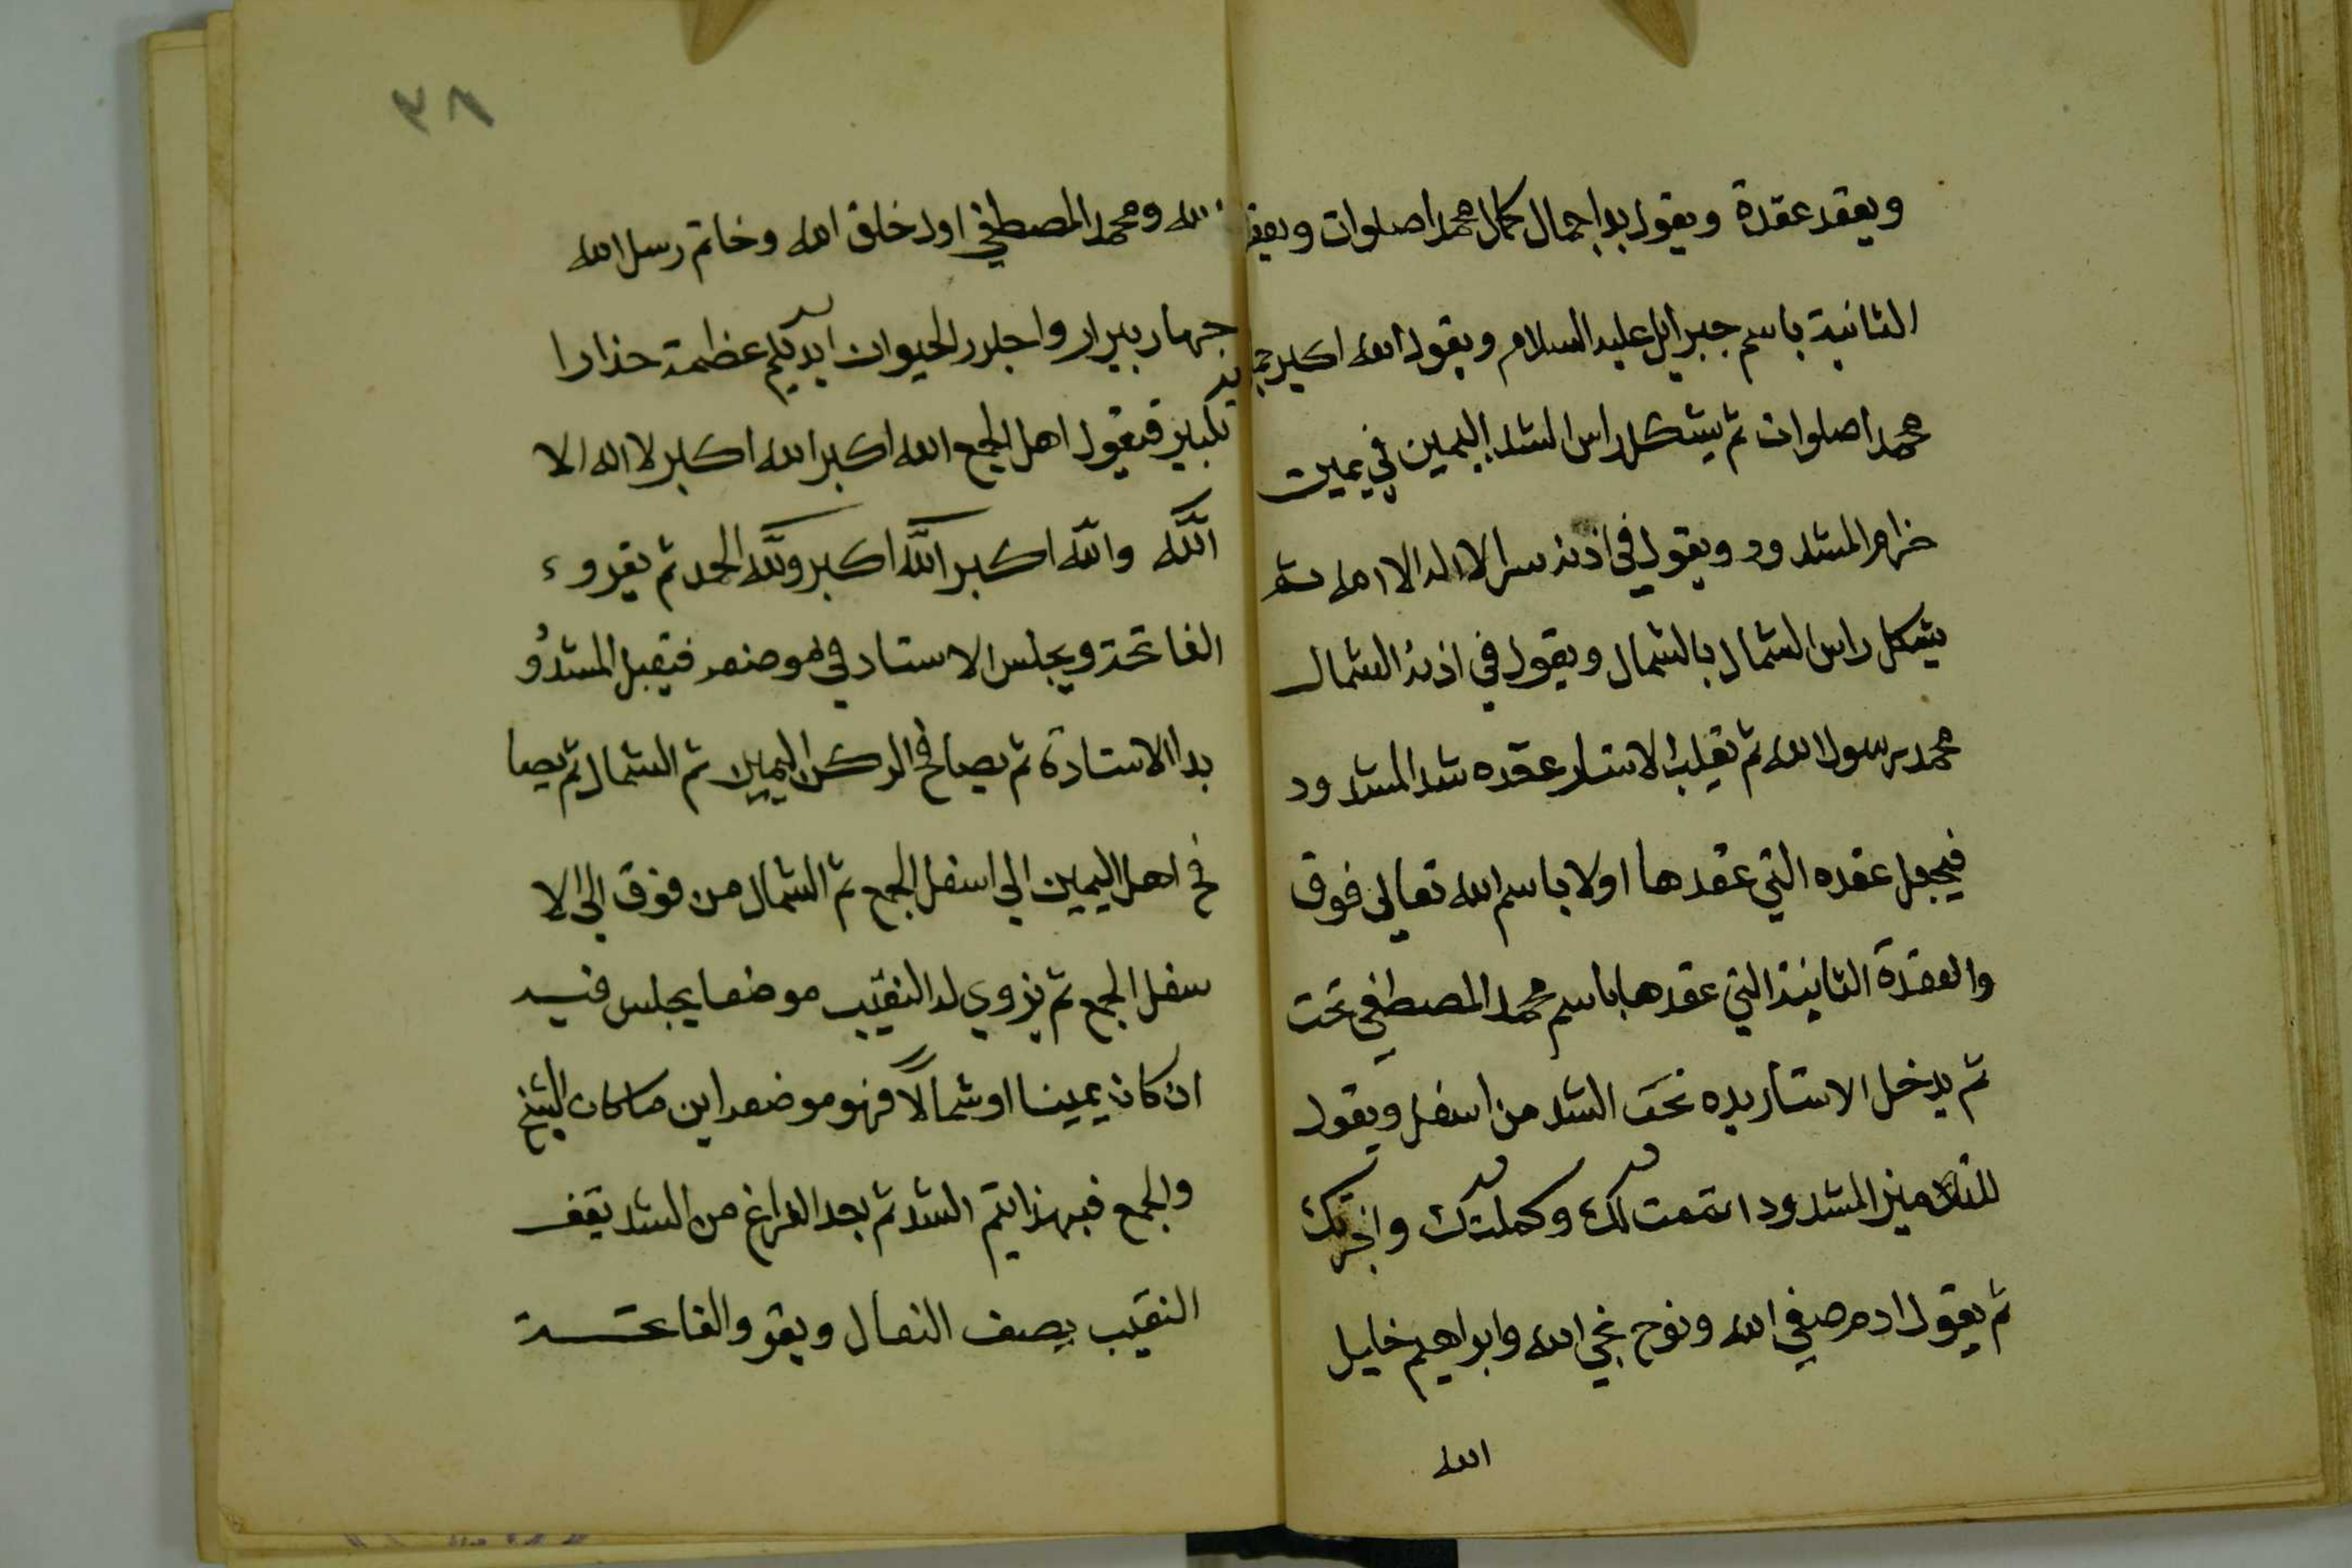 ويعقد عقدة ويقول براجمال كمال محمد اصلوات ويعقد
الثانية باسم جبرايل عليه السلام ويقول الله اكبر
محمد اصلوات ثم يشكل راس الشد اليمين في يمين
خزام المشدود ويقول في اذنه سرا لا اله الا الله ثم
يشكل راس الشمال بالشمال ويقول في اذنه الشمال
محمد رسول الله ثم يقلب الاستاد عقده شد المشدود
فيجعل عقده التي عقدها اولا باسم الله تعالى فوق
والعقدة الثانية التي عقدها باسم محمد المصطفي تحت
ثم يدخل الاستاد يده تحت الشد من اسفل ويقول
للتلاميذ المشدود اتممت لك وكملتك
ثم يقول ادم صفي الله ونوح نجي الله وابراهيم خليل
الله
٣٨
الله ومحمد المصطفي اول خلق الله وخاتم رسل الله
جهار بيرار واجلرر لحيوان ايديكم عظمة حذارا
تكبير فيقول اهل الجمع الله اكبر الله اكبر لا اله الا
الله والله اكبر الله اكبر ولله الحمد ثم يقروء
الفاتحة ويجلس الاستاد في موضعه فيقبل المشدو
يدا الاستادة ثم يصافح الركن اليمين ثم الشمال ثم يصا
فح اهل اليمين الي اسفل الجمع ثم الشمال من فوق الي الا
سفل الجمع ثم يزوي له النقيب موضعا يجلس فيه
ان كان يمينا او شمالاً فهو موضعه اين ما كان الشيخ
والجمع فبهذا يتم الشد ثم بعد الفراغ من الشد يقف
النقيب يصف النعال ويقرو الفاتحة